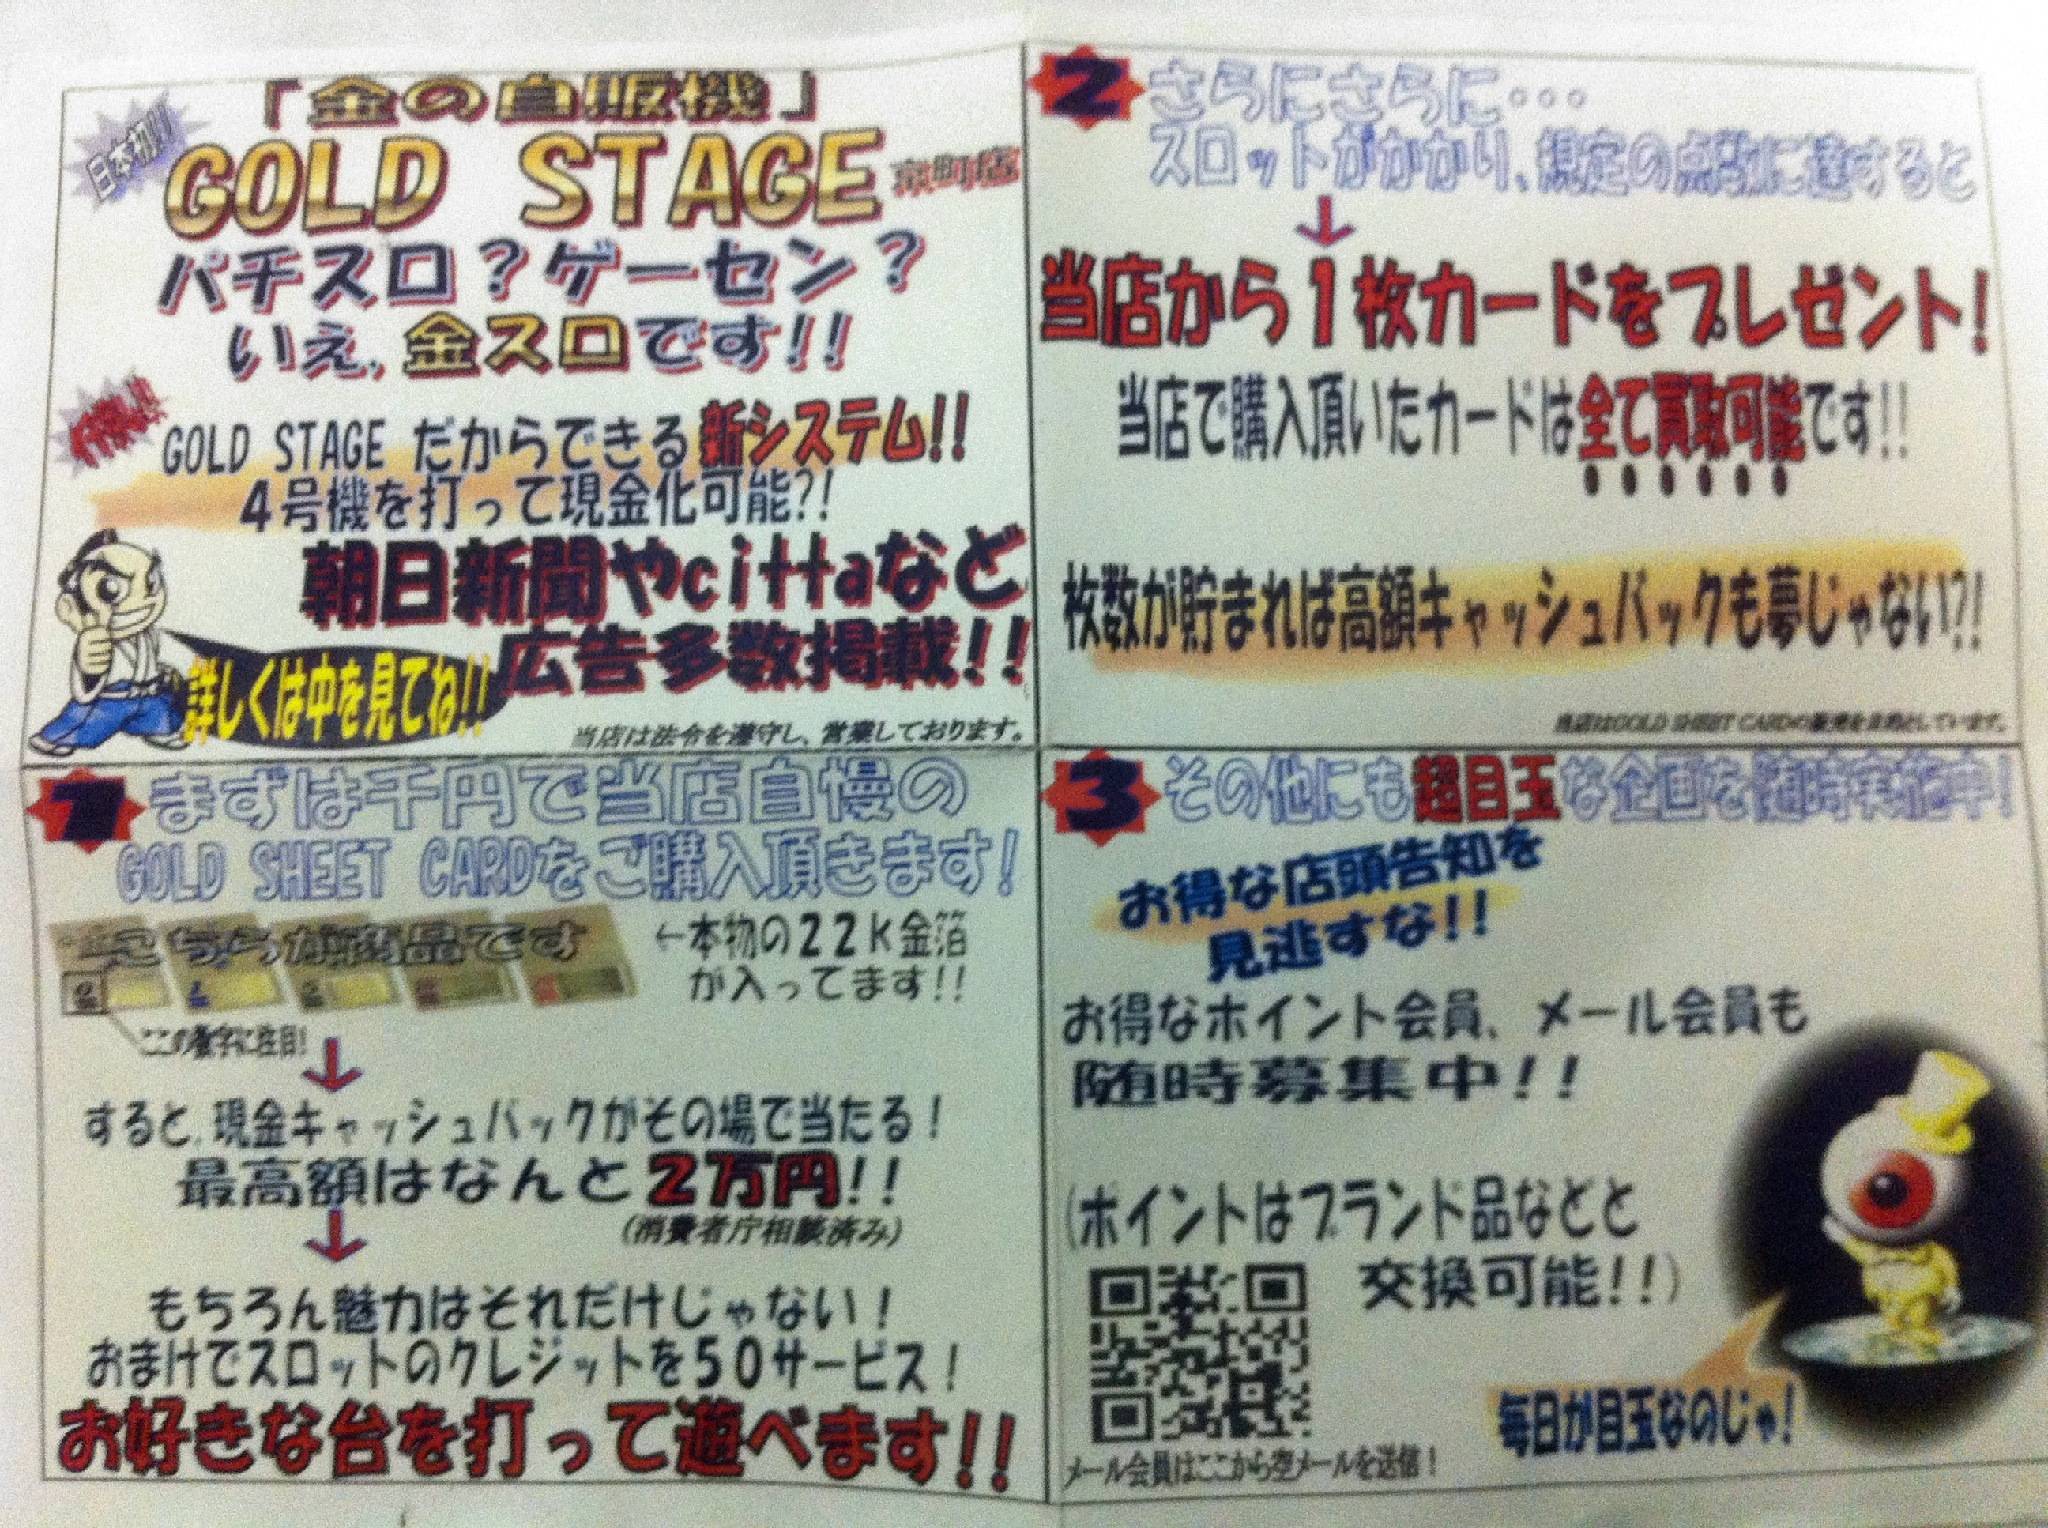 日本初!!
「金の自販機」
GOLD STAGE 京町店
パチスロ?ゲーセン?
いえ,金スロです!!
GOLD STAGE だからできる新システム!!
4号機を打って現金化可能?!
朝日新聞やcittaなど
広告多数掲載!!
詳しくは中を見てね!!
当店は法令を遵守し、営業しております。
1 まずは千円で当店自慢の
GOLD SHEET CARDをご購入頂きます!
こちらが商品です
←本物の22K金箔
が入ってます!!
ここの数字に注目!
↓
すると,現金キャッシュバックがその場で当たる!
最高額はなんと2万円!!
(消費者庁相談済み)
↓
もちろん魅力はそれだけじゃない!
おまけでスロットのクレジットを50サービス!
お好きな台を打って遊べます!!
2 さらにさらに・・・
スロットがかかり、規定の点数に達すると
↓
当店から1枚カードをプレゼント!
当店で購入頂いたカードは全て買取可能です!!
枚数が貯まれば高額キャッシュバックも夢じゃない?!
当店はGOLD SHEET CARDの販売を目的としています。
3 その他にも超目玉な企画を随時実施中!
お得な店頭告知を
見逃すな!!
お得なポイント会員、メール会員も
随時募集中!!
(ポイントはブランド品などと
交換可能!!)
毎日が目玉なのじゃ!
メール会員はここから空メールを送信!